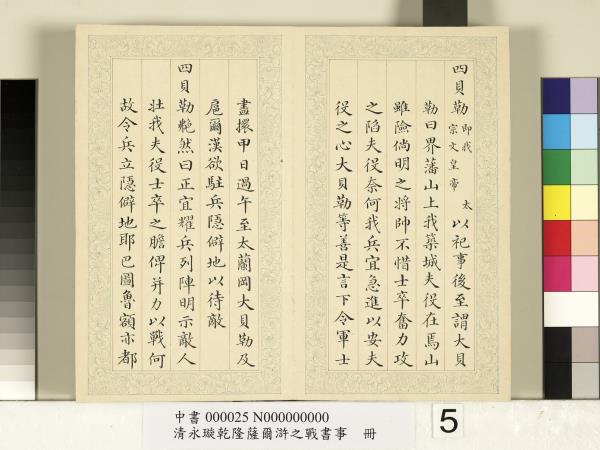 四貝勒即我太
宗文皇帝以祀事後至謂大貝
勒曰界藩山上我築城夫役在焉山
雖險倘明之將帥不惜士卒奮力攻
之陷夫役奈何我兵宜急進以安夫
役之心大貝勒等善是言下令軍士
盡擐甲日過午至太蘭岡大貝勒及
扈爾漢欲駐兵隱僻地以待敵
四貝勒艴然曰正宜耀兵列陣明示敵人
壯我夫役士卒之膽俾并力以戰何
故令兵立隱僻地耶巴圖魯額亦都
中書 000025 N000000000
清永璇乾隆薩爾滸之戰書事 冊
5